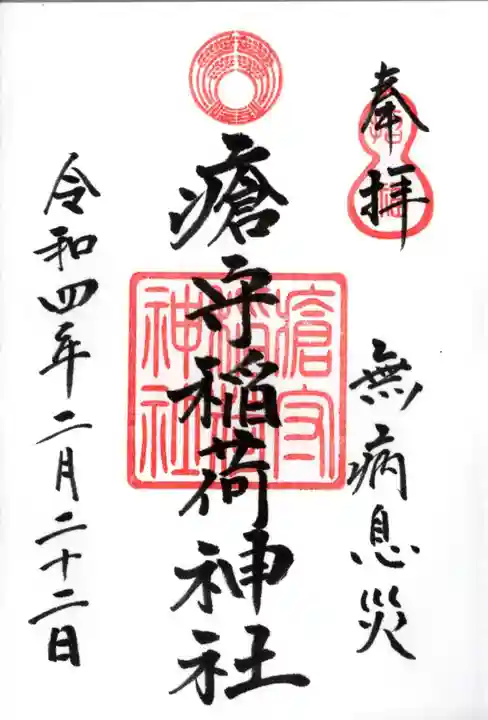 奉拝
無病息災
瘡守稲荷神社
瘡守
稲荷
神社
令和四年二月二十二日